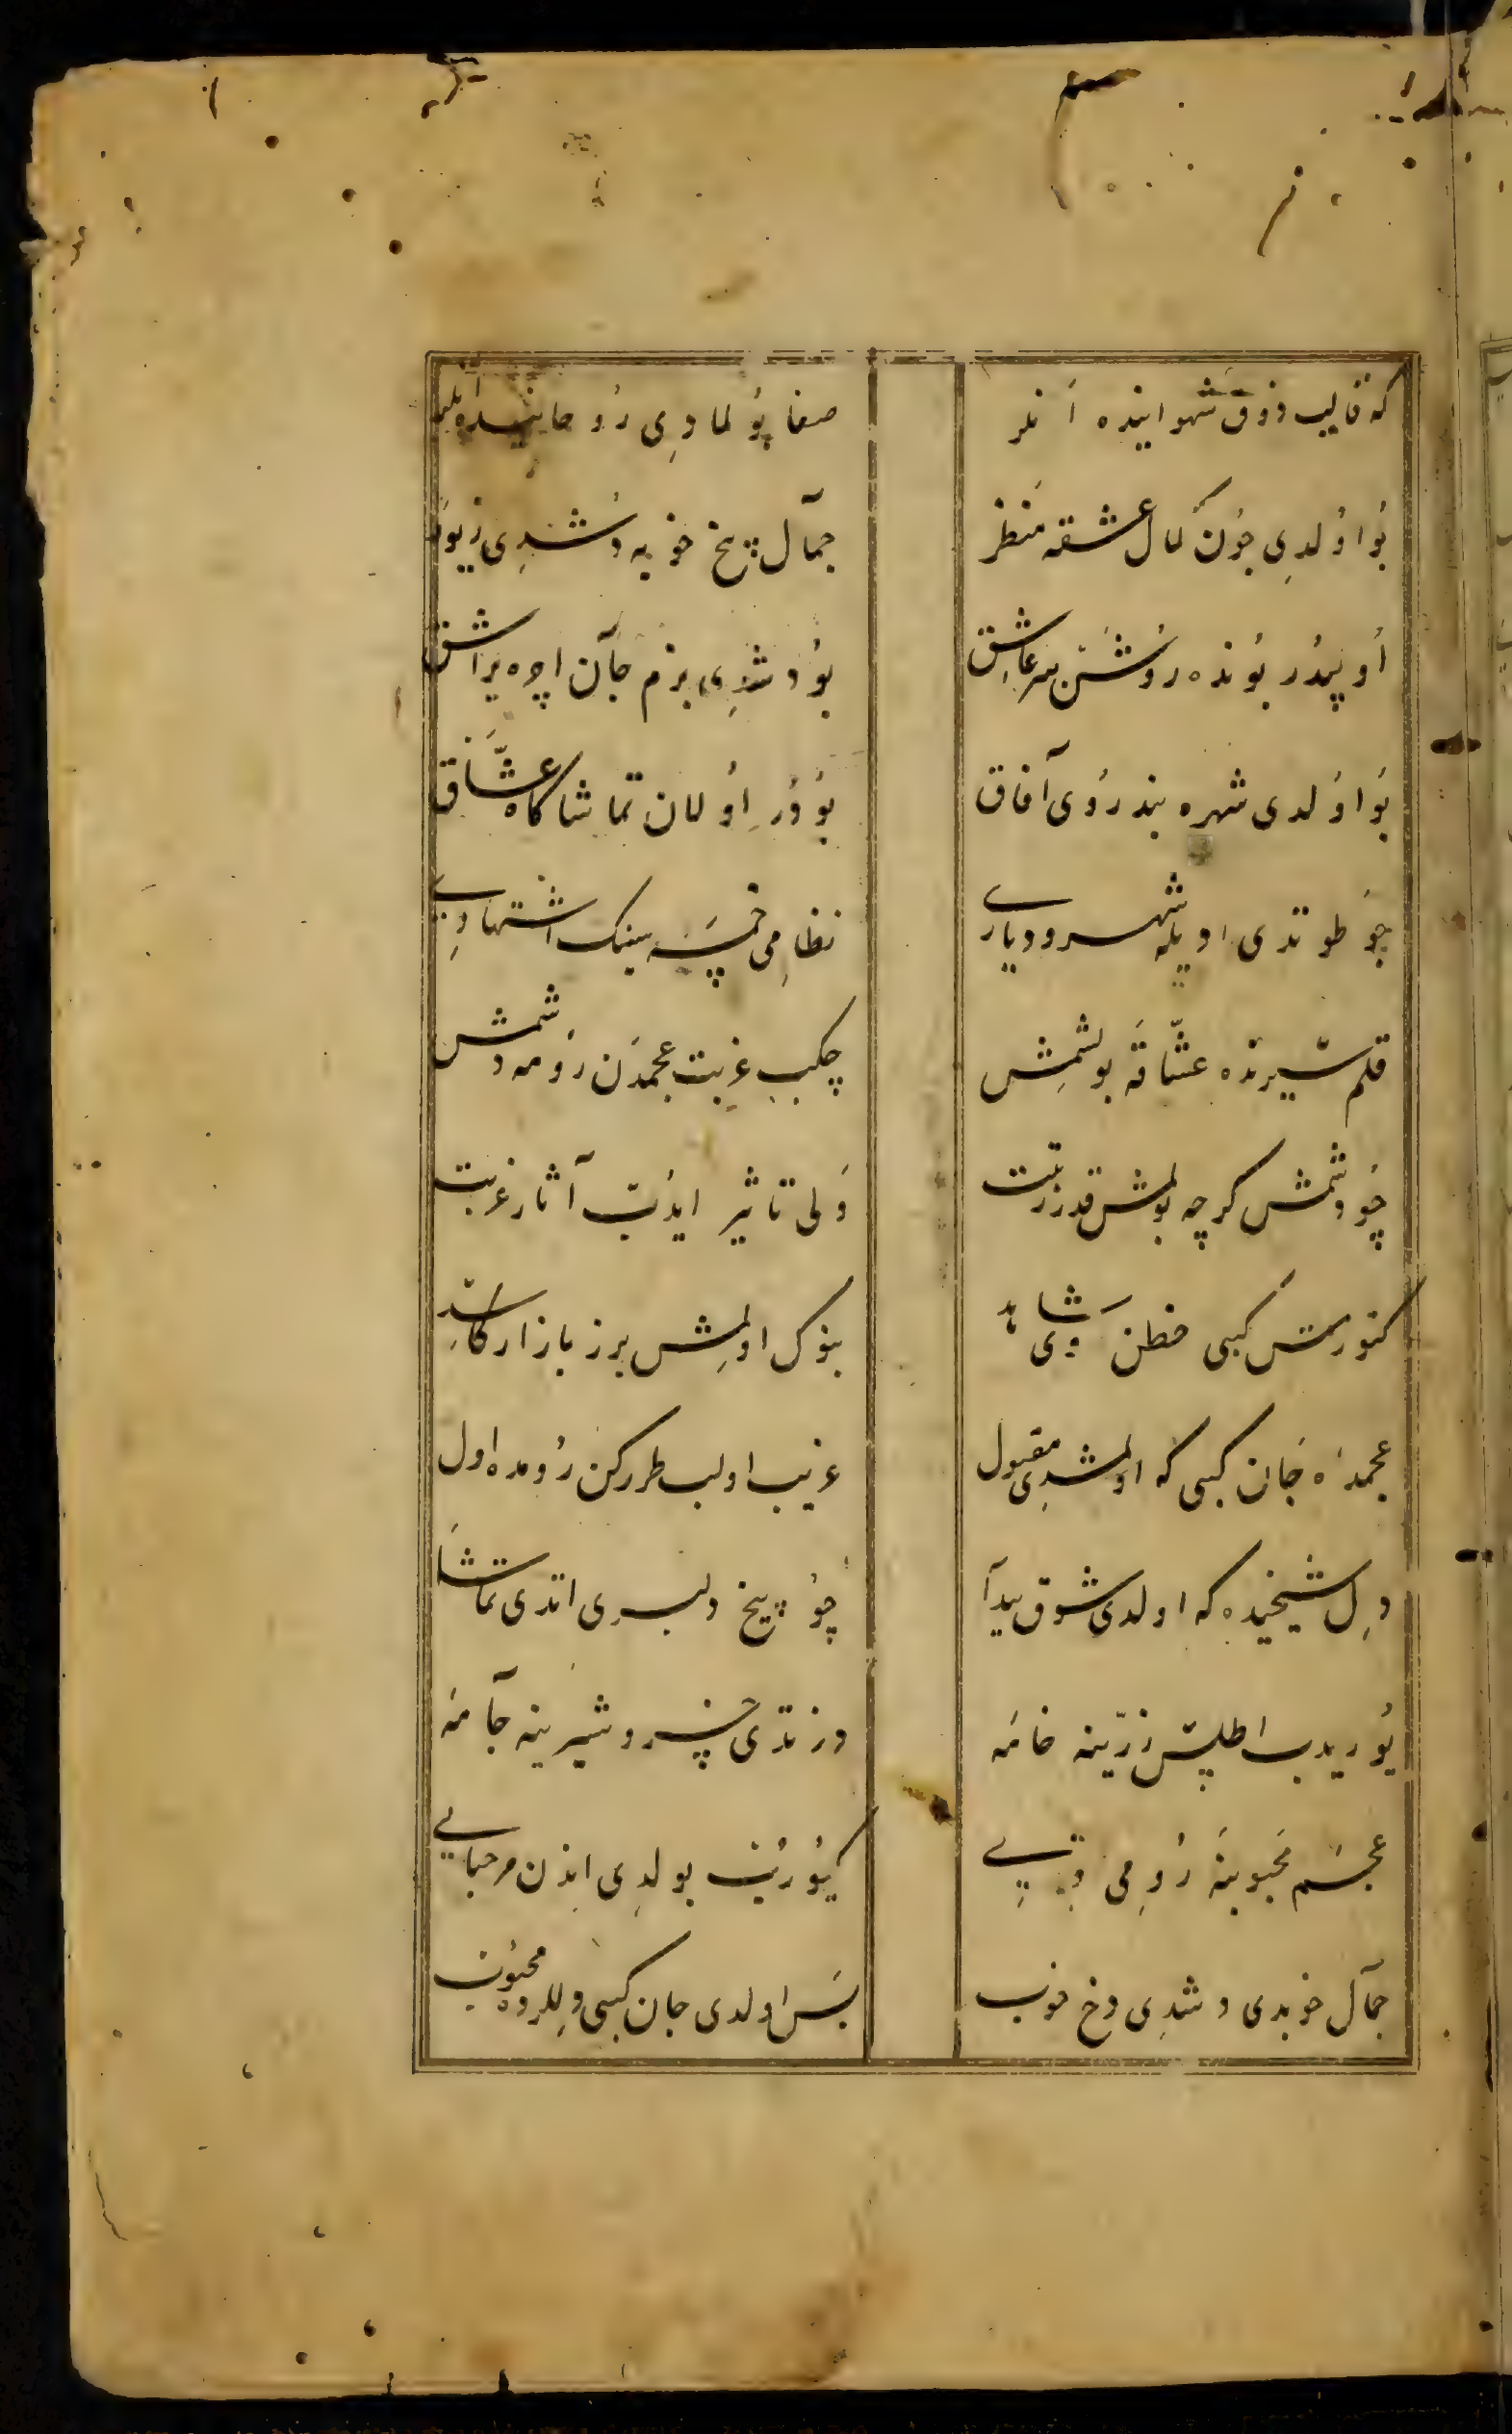 که قالیب ذوق شهوانیده آنلر
صفا بولمادی روحانیده آنلر
بو اولدی چون کمال عشقه منظر
جمال شیخ خوبه دشدی زیور
اوپدر بونده روشن سر عاشق
بو دشدی بزم جان ایچره یراشق
بو اولدی شهره بند روی آفاق
بودر اولان تماشاکاه عشاق
چو طوتدی اویله شهر و دیاری
نظامی خمسه سینک اشتهاری
قلم سیرنده عشاقه بولشمش
چکیب غربت عجمدن رومه دشمش
چو دشمش کرچه بولمش قدر رتبت
ولی تاثیر ایدوب آثار غربت
کتورمش کبی خطن شاهد وی
بنوک اولمش برز بازار کاسد
عجمده جان کبی که اولمشدی مقبول
غریب اولب طررکن رومده اول
دل شیخیده که اولدی شوق پیدا
چو شیخ دلبری اتدی تماشا
یوریدب اطلس زرینه خامه
دزتدی خسرو شیرینه جامه
عجم محبوبنه رومی قبایی
کیورب بولدی اندن مرحبایی
جمال خوبدی دشدی دخ خوب
بس اولدی جان کبی دللرده محبوب